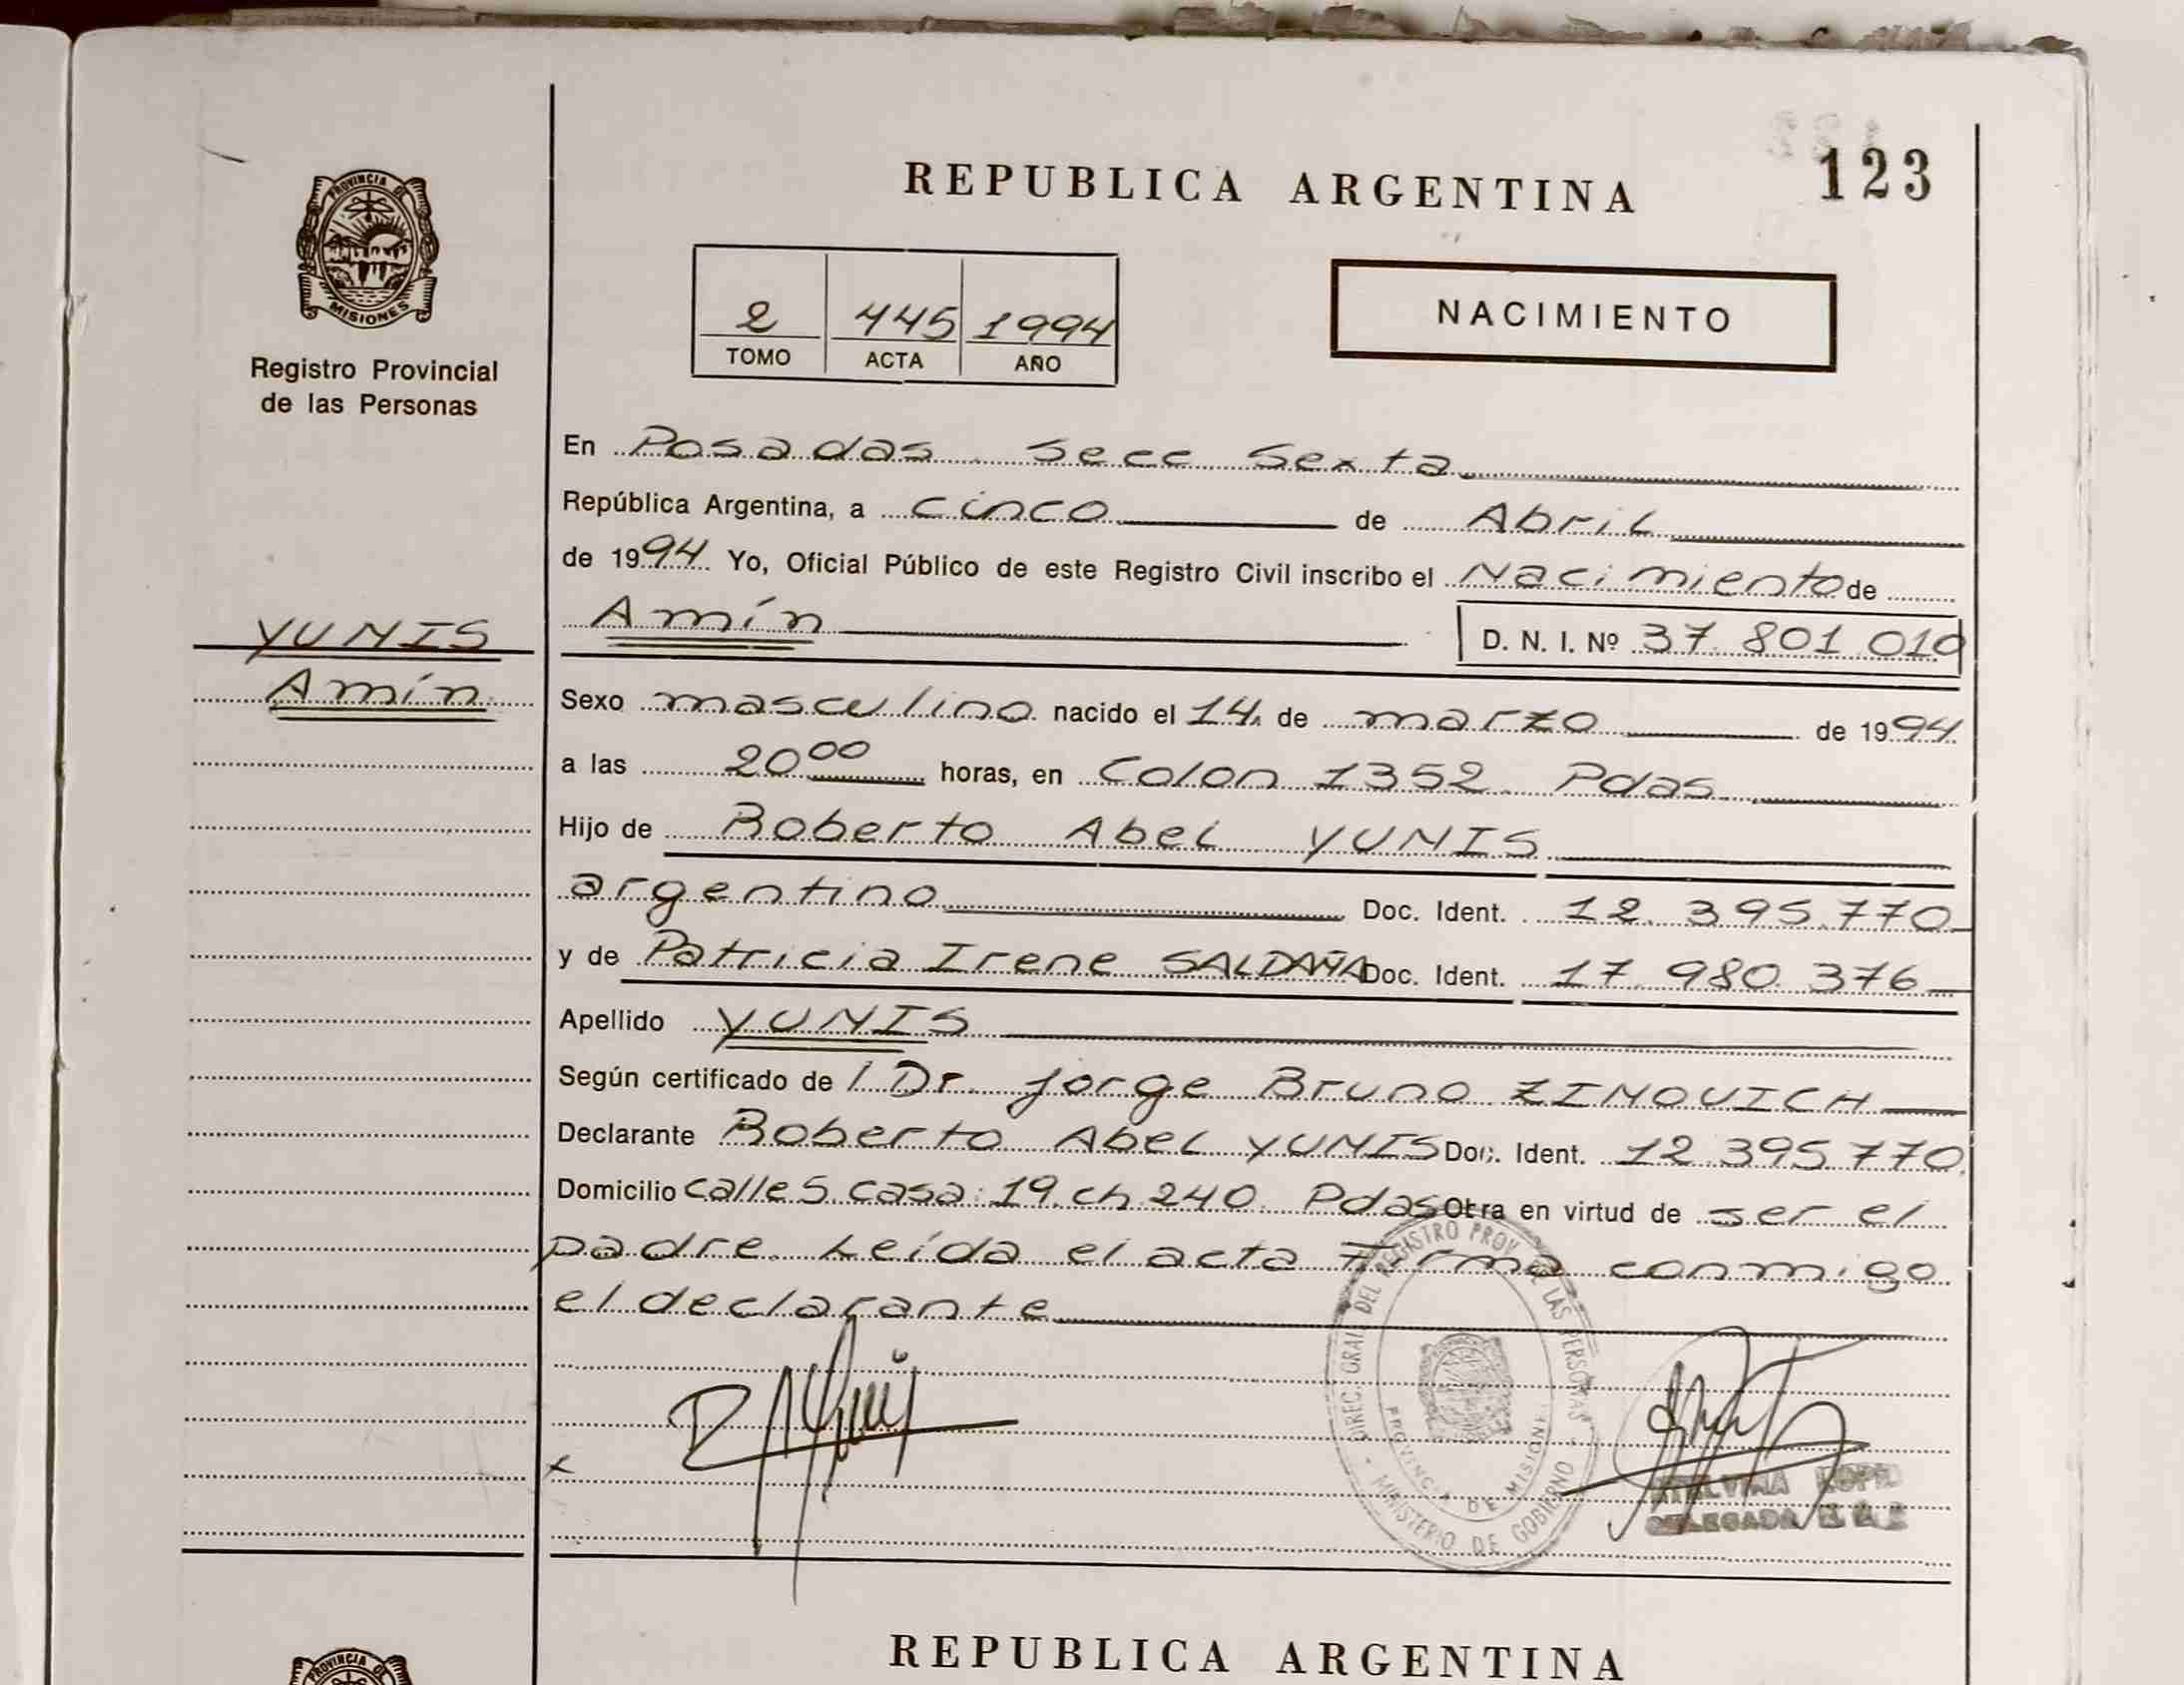 123
REPUBLICA ARGENTINA
PROVINCIA DE
MISIONES
Registro Provincial
de las Personas
2 445 1994
TOMO ACTA AÑO
NACIMIENTO
En Posadas Secc Sexta
República Argentina, a cinco de Abril
de 1994 Yo, Oficial Público de este Registro Civil inscribo el Nacimiento de
YUNIS
Amín
Amín D. N. I. Nº 37.801.010
Sexo masculino nacido el 14 de marzo de 1994
a las 20⁰⁰ horas, en Colon 1352 Pdas
Hijo de Roberto Abel YUNIS
argentino Doc. Ident. 12.395.770
y de Patricia Irene SALDAÑA Doc. Ident. 17.980.376
Apellido YUNIS
Según certificado de l Dr. Jorge Bruno ZINOVICH
Declarante Roberto Abel YUNIS Doc. Ident. 12.395.770
Domicilio calle 5 casa: 19 ch 240 Pdas Otra en virtud de ser el
padre. Leída el acta Firma conmigo
el declarante
DIREC. GRAL. DEL REGISTRO PROV. DE LAS PERSONAS
PROVINCIA DE MISIONES
MINISTERIO DE GOBIERNO
DELEGADA
REPUBLICA ARGENTINA
PROVINCIA DE